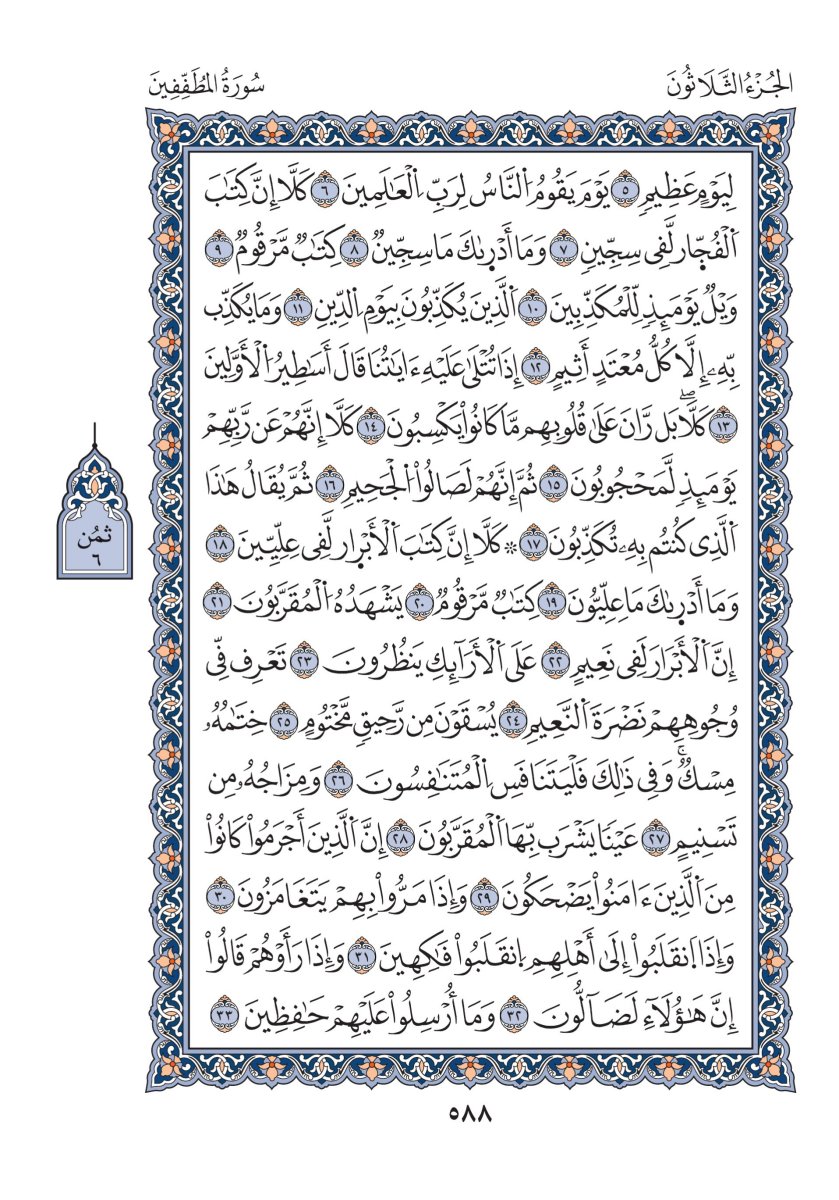 الجُزْءُ الثَّلَاثُونَ
سُورَةُ المُطَفِّفِينَ
لِيَوْمٍ عَظِيمٍ ٥ يَوْمَ يَقُومُ ٱلنَّاسُ لِرَبِّ ٱلْعَٰلَمِينَ ٦ كَلَّا إِنَّ كِتَٰبَ
ٱلْفُجّ۪ار لَّفِى سِجِّينٍ ٧ وَمَا أَدْر۪ىٰكَ مَا سِجِّينٌ ٨ كِتَٰبٌ مَّرْقُومٌ ٩
وَيْلٌ يَوْمَئِذٍ لِّلْمُكَذِّبِينَ ١٠ ٱلَّذِينَ يُكَذِّبُونَ بِيَوْمِ ٱلدِّينِ ١١ وَمَا يُكَذِّب
بِّهِۦ إِلَّا كُلُّ مُعْتَدٍ أَثِيمٍ ١٢ إِذَا تُتْلَىٰ عَلَيْهِ ءَايَٰتُنَا قَالَ أَسَٰطِيرُ ٱلْأَوَّلِينَ
١٣ كَلَّاۖ بَل رَّانَ عَلَىٰ قُلُوبِهِم مَّا كَانُواْ يَكْسِبُونَ ١٤ كَلَّا إِنَّهُمْ عَن رَّبِّهِمْ
يَوْمَئِذٍ لَّمَحْجُوبُونَ ١٥ ثُمَّ إِنَّهُمْ لَصَالُواْ ٱلْجَحِيمِ ١٦ ثُمَّ يُقَالُ هَٰذَا
ٱلَّذِى كُنتُم بِهِۦ تُكَذِّبُونَ ١٧ ۞ كَلَّا إِنَّ كِتَٰبَ ٱلْأَبْر۪ار لَّفِى عِلِّيِّينَ ١٨
وَمَا أَدْر۪ىٰكَ مَا عِلِّيُّونَ ١٩ كِتَٰبٌ مَّرْقُومٌ ٢٠ يَشْهَدُهُ ٱلْمُقَرَّبُونَ ٢١
إِنَّ ٱلْأَبْرَارَ لَفِى نَعِيمٍ ٢٢ عَلَى ٱلْأَرَآئِكِ يَنظُرُونَ ٢٣ تَعْرِف فِّى
وُجُوهِهِمْ نَضْرَةَ ٱلنَّعِيمِ ٢٤ يُسْقَوْنَ مِن رَّحِيقٍ مَّخْتُومٍ ٢٥ خِتَٰمُهُۥ
مِسْكٌۚ وَفِى ذَٰلِكَ فَلْيَتَنَافَسِ ٱلْمُتَنَٰفِسُونَ ٢٦ وَمِزَاجُهُۥ مِن
تَسْنِيمٍ ٢٧ عَيْنًا يَشْرَب بِّهَا ٱلْمُقَرَّبُونَ ٢٨ إِنَّ ٱلَّذِينَ أَجْرَمُواْ كَانُواْ
مِنَ ٱلَّذِينَ ءَامَنُواْ يَضْحَكُونَ ٢٩ وَإِذَا مَرُّواْ بِهِمْ يَتَغَامَزُونَ ٣٠
وَإِذَا ٱنقَلَبُواْ إِلَىٰ أَهْلِهِمِ ٱنقَلَبُواْ فَٰكِهِينَ ٣١ وَإِذَا رَأَوْهُمْ قَالُواْ
إِنَّ هَٰؤُلَآءِ لَضَآلُّونَ ٣٢ وَمَا أُرْسِلُواْ عَلَيْهِمْ حَٰفِظِينَ ٣٣
ثُمُن
٦
٥٨٨